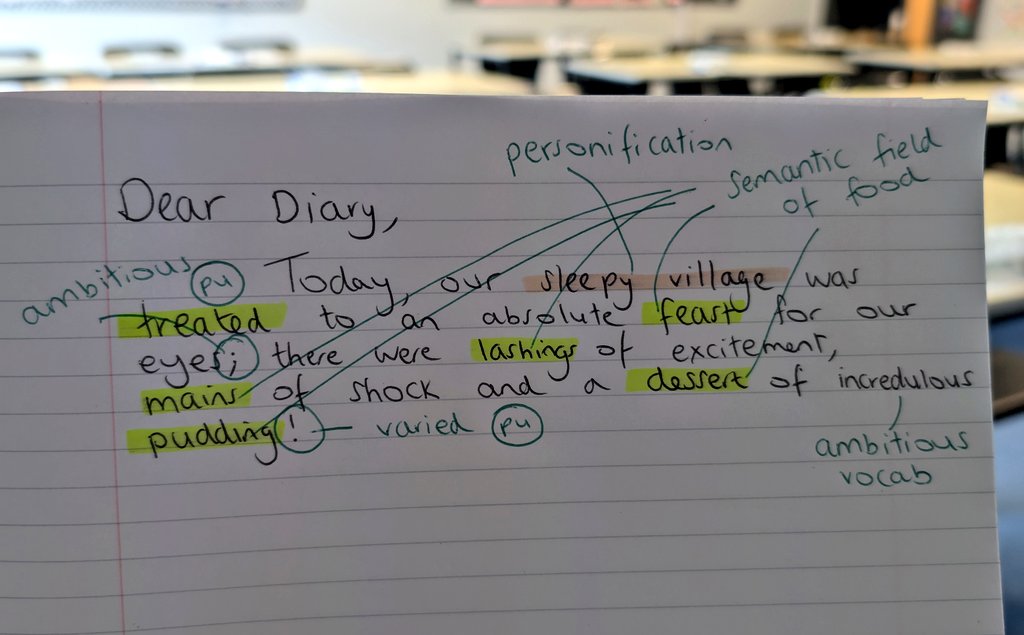 personification
semantic field
of food
Dear Diary,
ambitious pu
Today, our sleepy village was
treated to an absolute feast for our
eyes; there were lashings of excitement,
mains of shock and a dessert of incredulous
pudding! – varied pu
ambitious
vocab